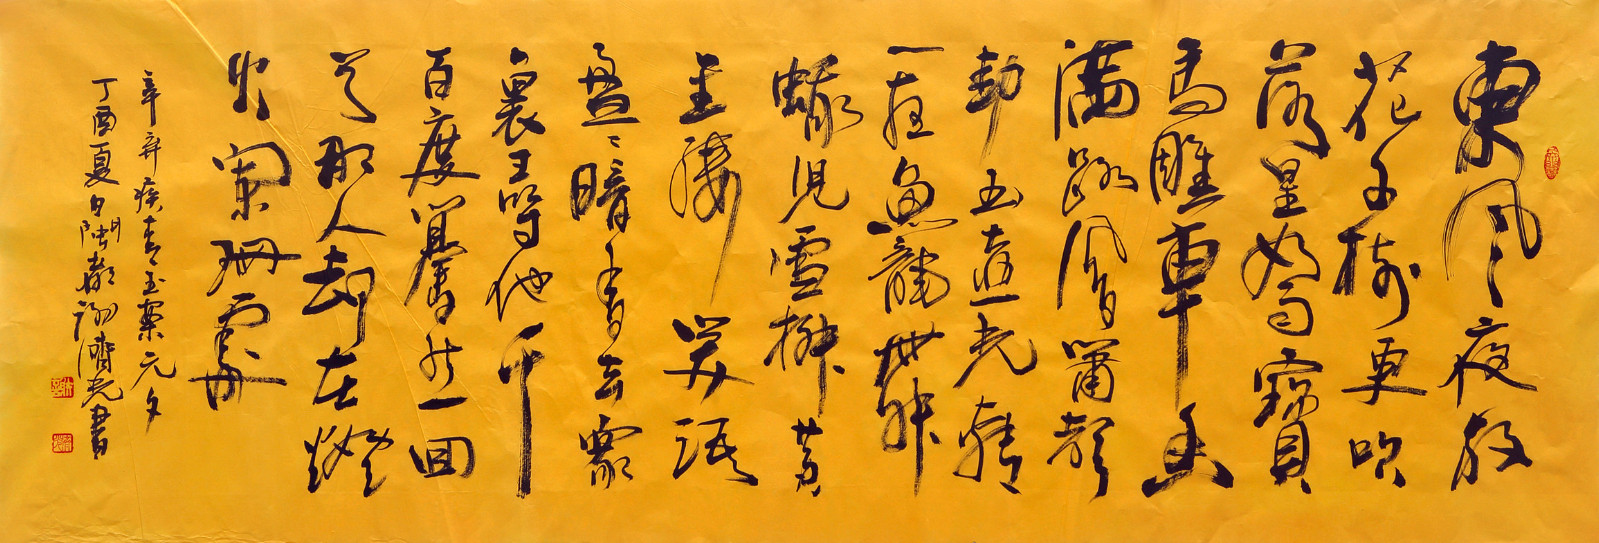 東風夜放
花千樹更吹
落星如雨寶
馬雕車香
滿路鳳簫聲
動玉壺光轉
一夜魚龍舞
蛾兒雪柳黄
金縷笑語
盈〻暗香去衆
裏尋他千
百度驀然回
首那人却在燈
火闌珊處
辛弃疾青玉案元夕
丁酉夏日閩都謝濟光書